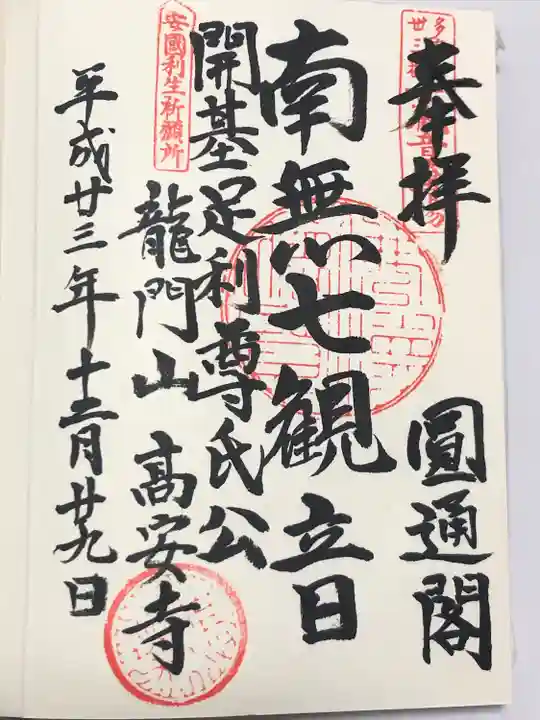 奉拝 圓通閣
南無七観音
開基足利尊氏公
龍門山 高安寺
平成廿三年十二月廿九日
安國利生祈願所